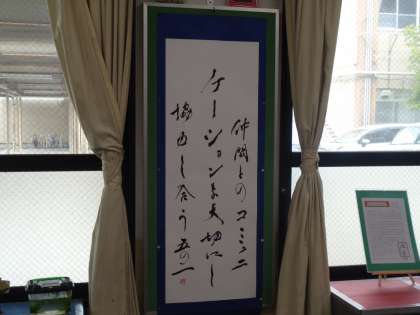 仲間とのコミュニ
ケーションを大切にし
協力し合う五の二